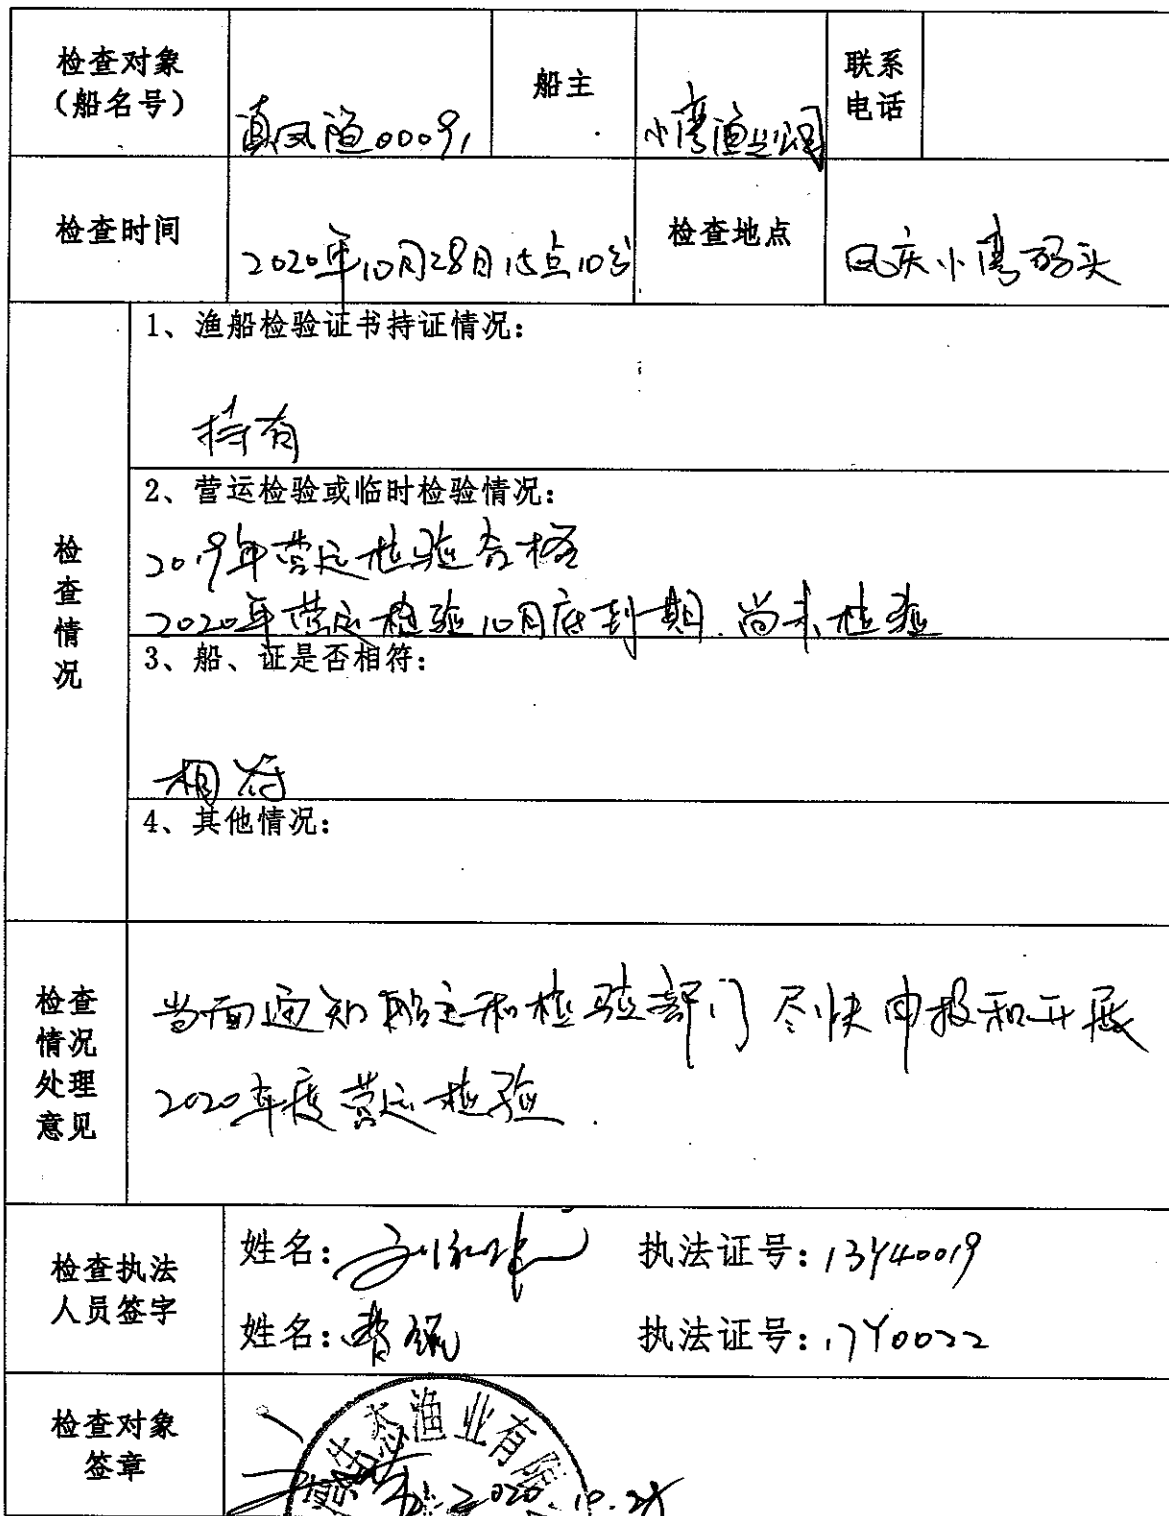 检查对象
（船名号）
滇凤渔00091
船主
小湾渔业公司
联系
电话
检查时间
2020年10月28日15点10分
检查地点
凤庆小湾码头
检查情况
1、渔船检验证书持证情况：
持有
2、营运检验或临时检验情况：
2019年营运检验合格
2020年营运检验10月底到期.尚未检验
3、船、证是否相符：
相符
4、其他情况：
检查
情况
处理
意见
当面通知船主和检验部门尽快申报和开展
2020年度营运检验.
检查执法
人员签字
姓名：
执法证号：13Y40019
姓名：
执法证号：17Y0022
检查对象
签章
生态渔业有限
2020.10.28